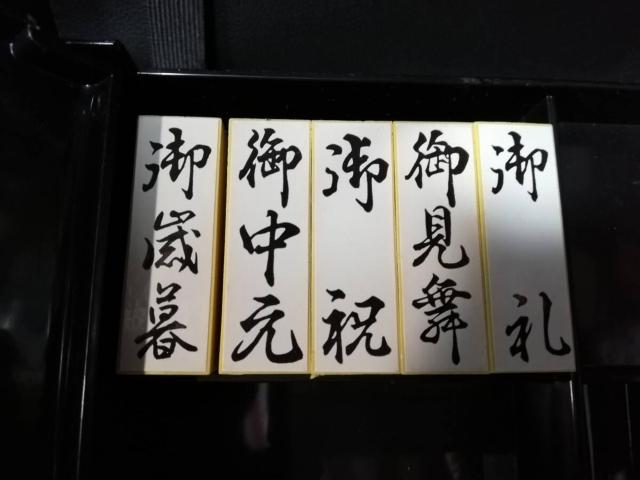 御礼
御見舞
御祝
御中元
御歳暮